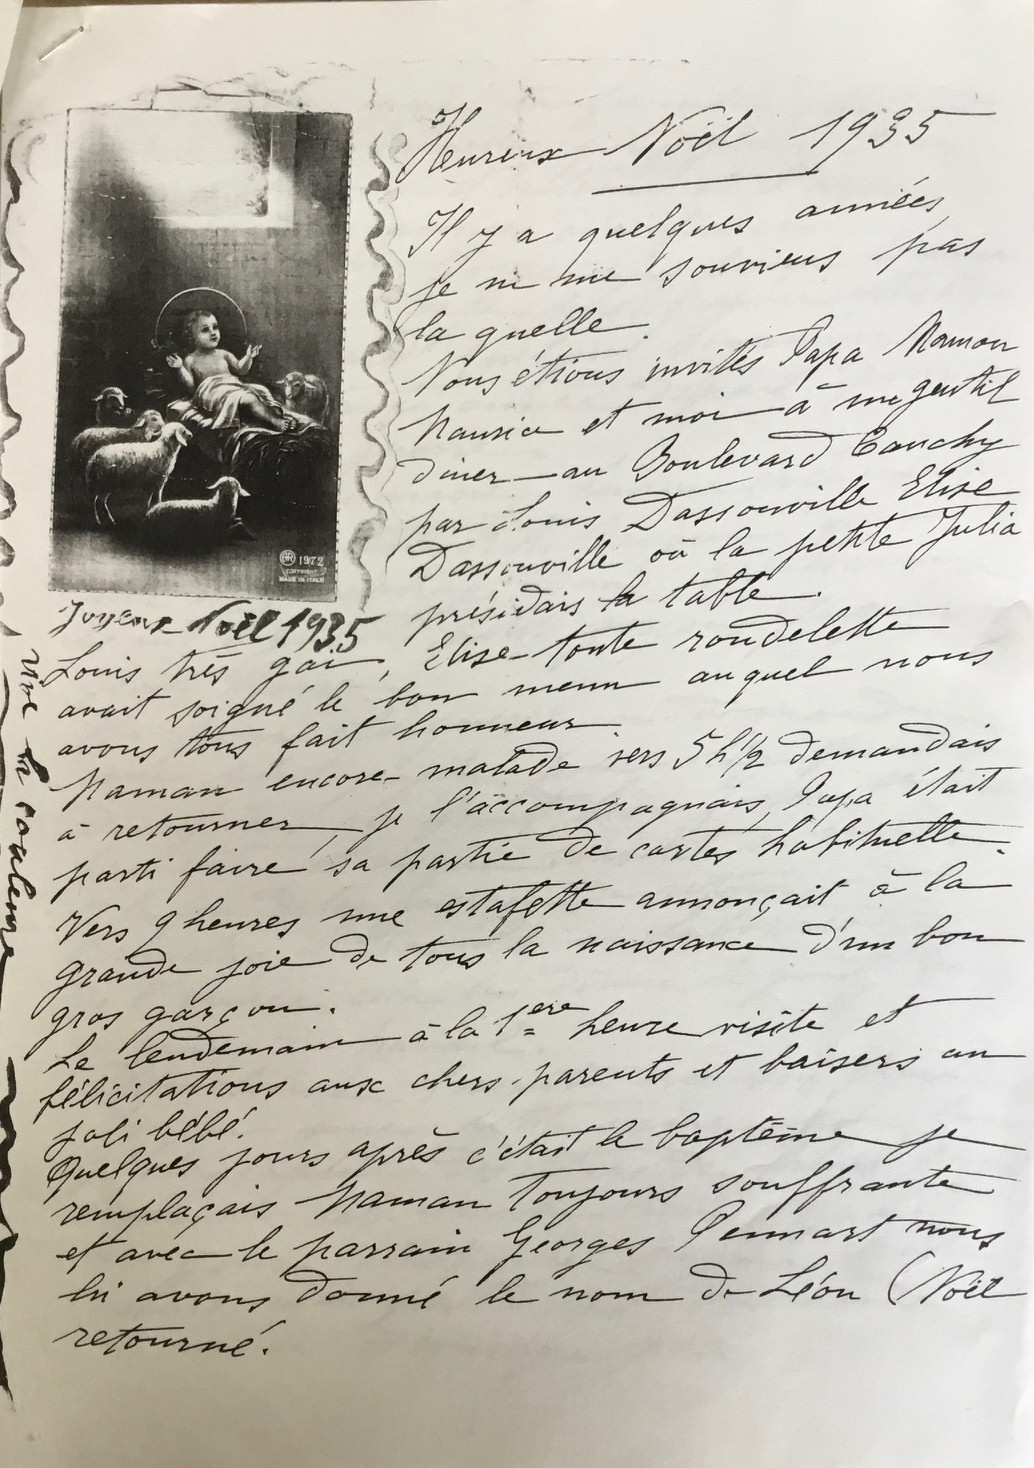 Heureux Noël 1935
Il y a quelques années
je ne me souviens pas
la quelle.
Nous étions invités Papa Maman
Maurice et moi à un gentil
diner au Boulevard Cauchy
par Louis Dassonville Elise
Dassonville où la petite Julia
présidais la table.
AR 1972
COPYRIGHT
MADE IN ITALIE
Joyeux Noël 1935
Louis très gai, Elise toute rondelette
avait soigné le bon menu auquel nous
avons tous fait honneur.
Maman encore malade vers 5h 1/2 demandais
à retourner, je l'accompagnais, Papa était
parti faire sa partie de cartes habituelle.
Vers 9 heures une estafette annonçait à la
grande joie de tous la naissance d'un bon
gros garçon.
Le lendemain à la 1ere heure visite et
félicitations aux chers parents et baisers au
joli bébé.
Quelques jours après c'était le baptême je
remplaçais Maman toujours souffrante
et avec le parrain Georges Pennart nous
lui avons donné le nom de Léon (Noël
retourné.
Vive la